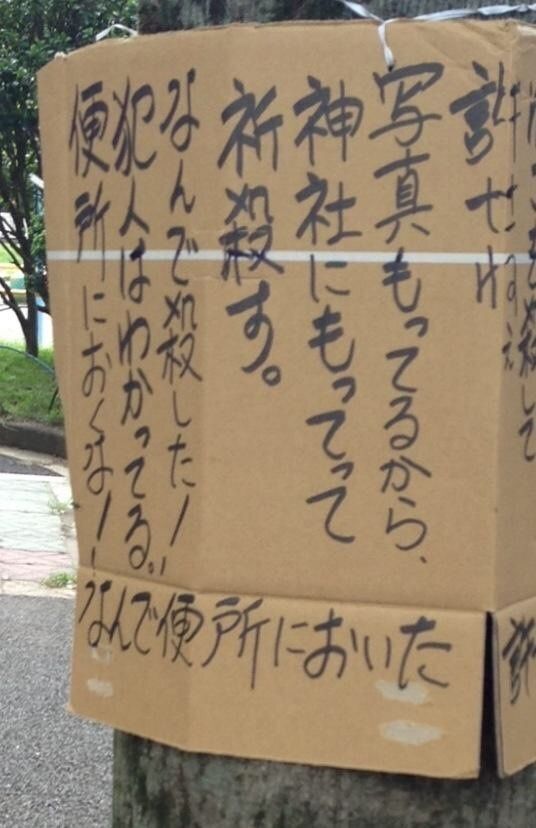 殺して
許せね
写真もってるから、
神社にもってって
祈殺す。
なんで殺した!
犯人はわかってる。
便所におくな!
なんで便所においた
許